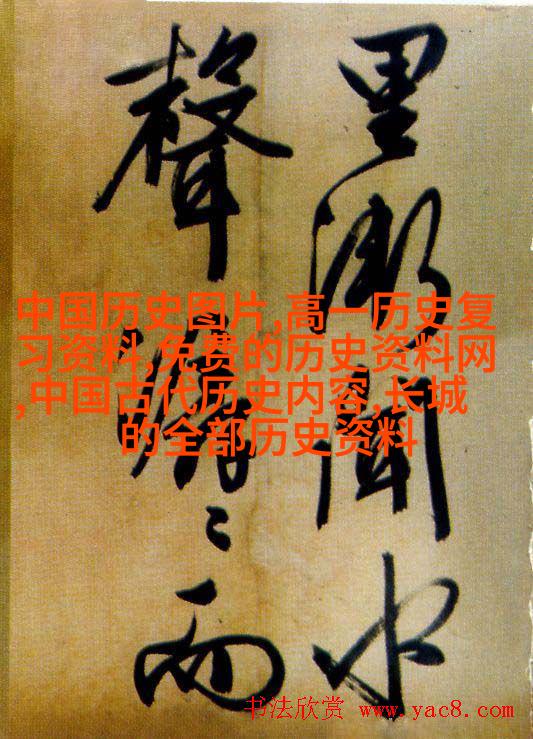 里漸聞水
聲潺々而
中国历史图片,高一历史复
习资料,免费的历史资料网
,中国古代历史内容,长城
的全部历史资料
书法欣赏 www.yac8.com